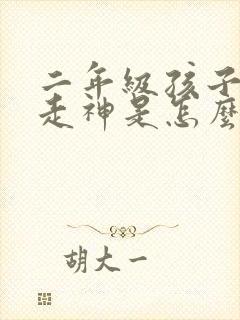 二年级孩子
走神是怎麼
胡大一